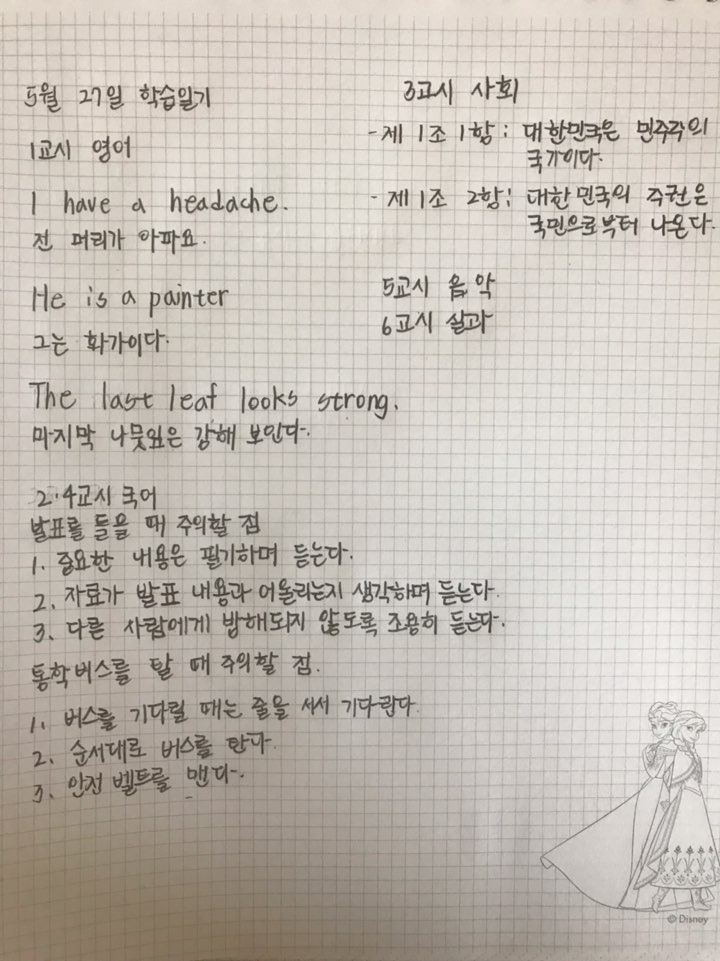 5월 27일 학습일기
1교시 영어
I have a headache.
전 머리가 아파요.
He is a painter
그는 화가이다.
The last leaf looks strong.
마지막 나뭇잎은 강해 보인다.
2·4교시 국어
발표를 들을 때 주의할 점
1. 중요한 내용은 필기하며 듣는다.
2. 자료가 발표 내용과 어울리는지 생각하며 듣는다.
3. 다른 사람에게 방해되지 않도록 조용히 듣는다.
통학버스를 탈 때 주의할 점.
1. 버스를 기다릴 때는 줄을 서서 기다린다.
2. 순서대로 버스를 탄다.
3. 안전 벨트를 맨다.
3교시 사회
-제 1조 1항: 대한민국은 민주국의
국가이다.
-제 1조 2항: 대한민국의 주권은
국민으로부터 나온다.
5교시 음악
6교시 실과
© Disney